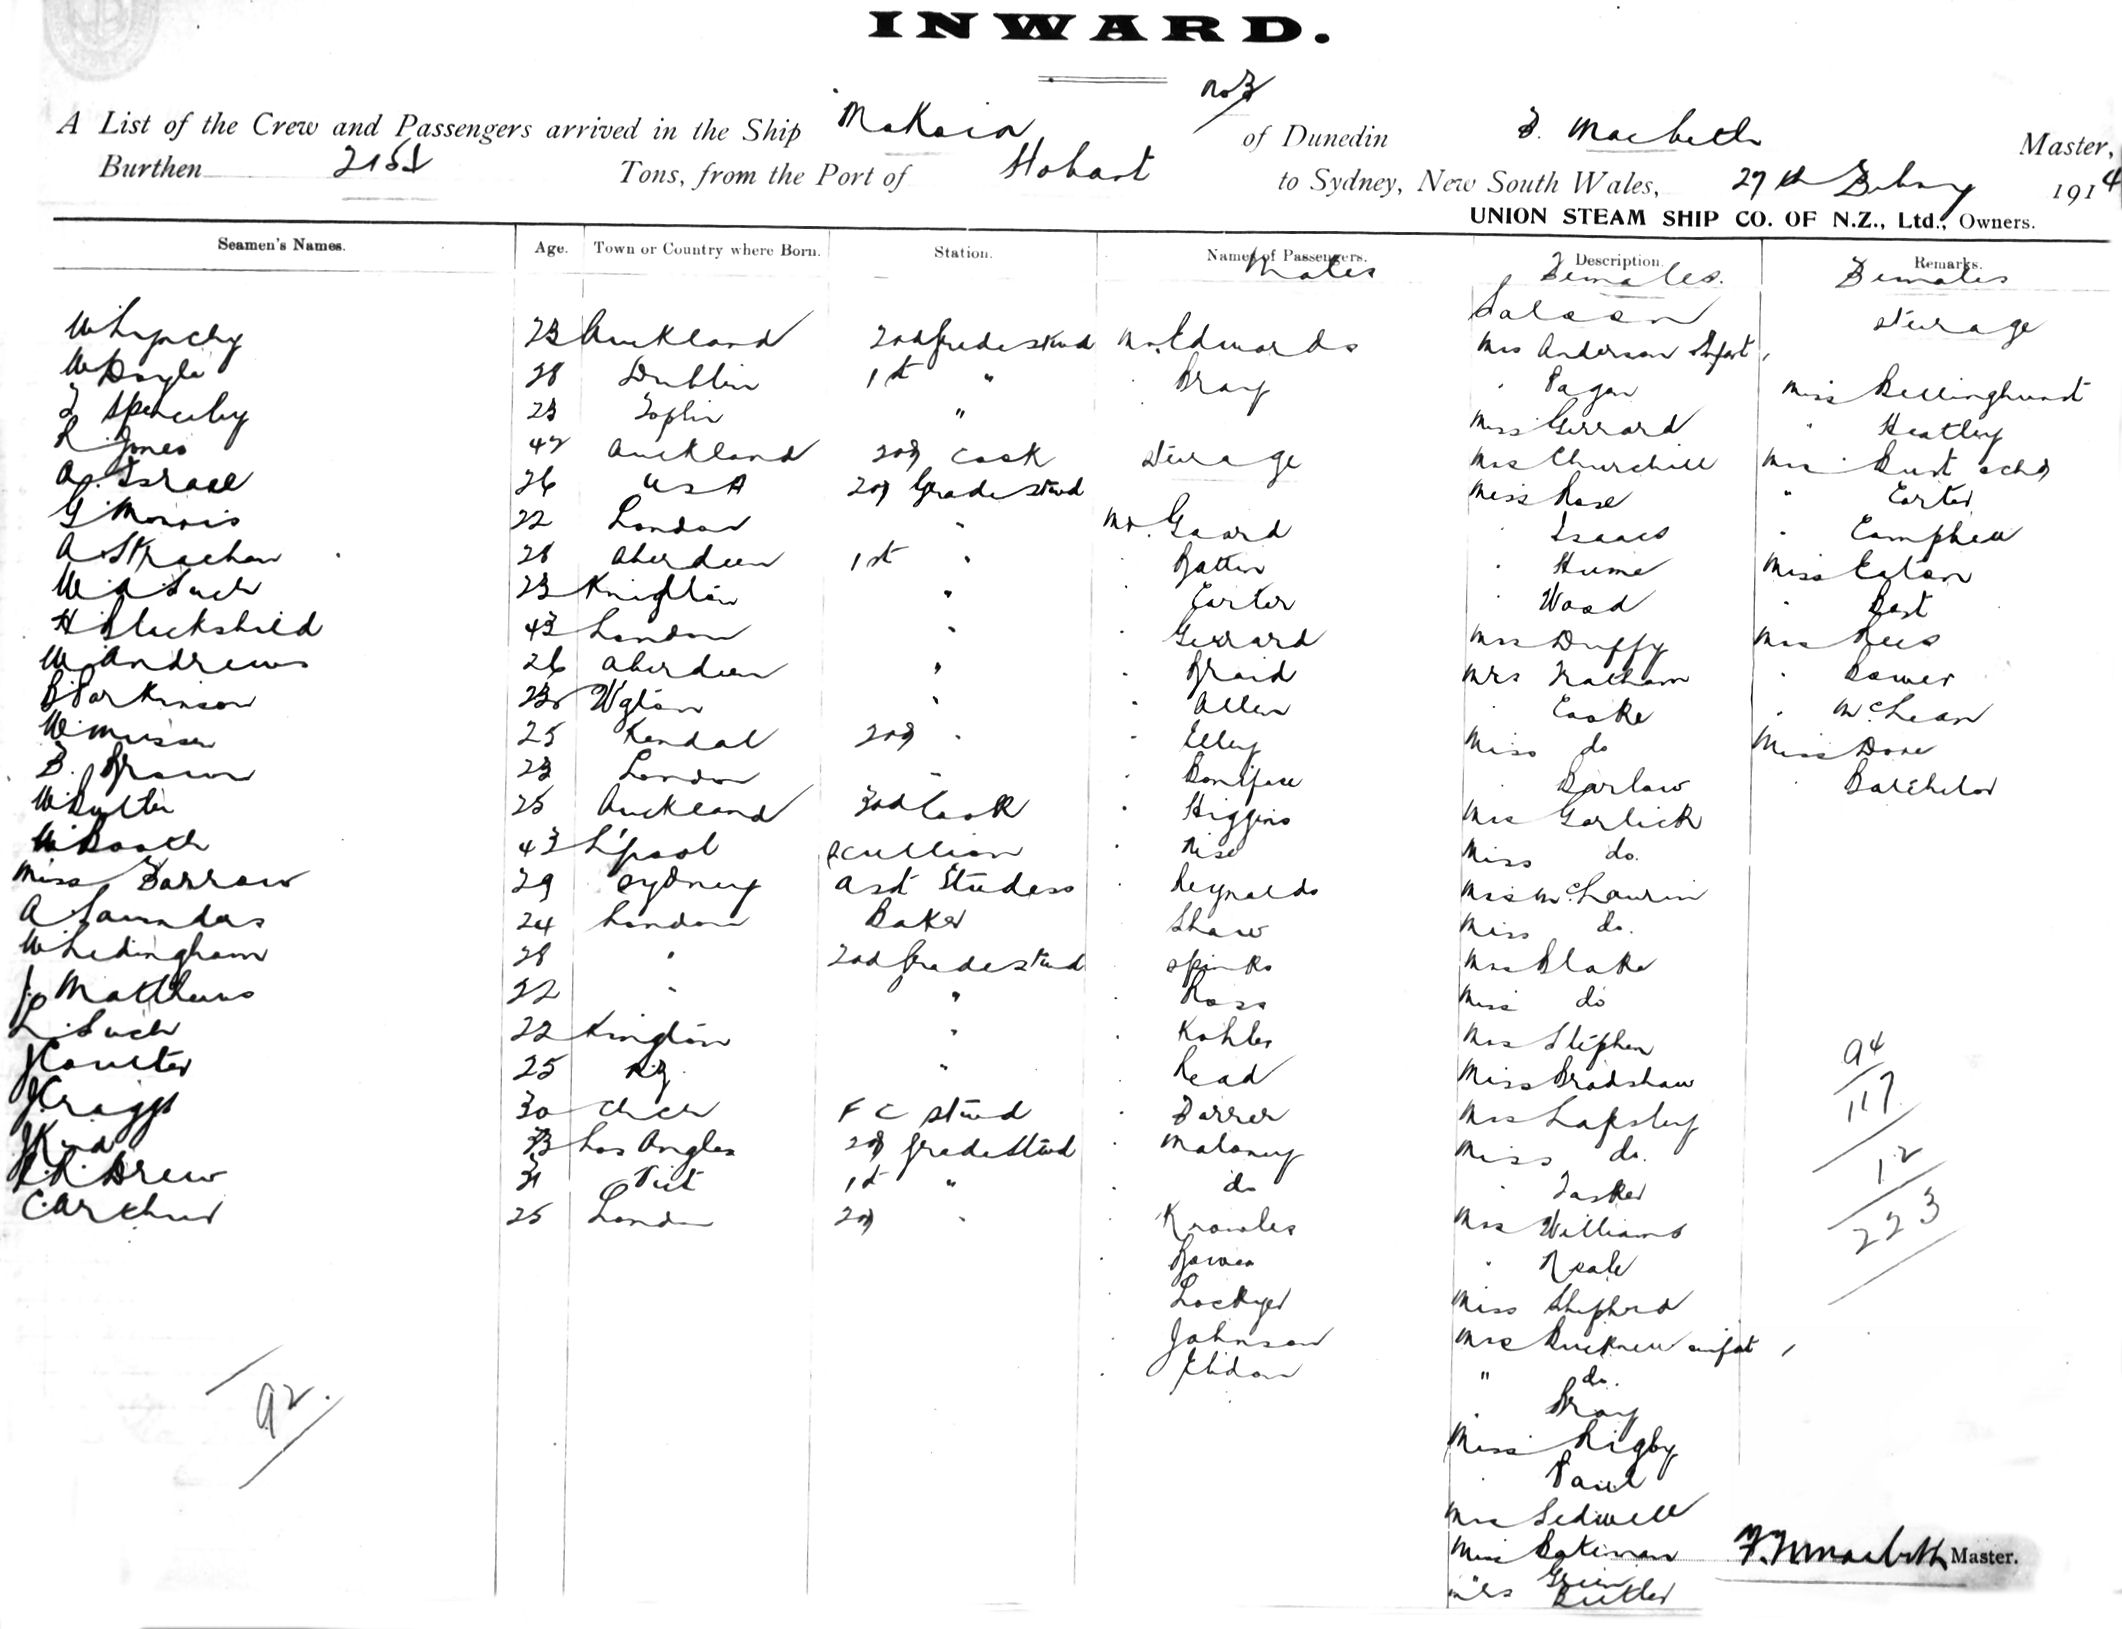 INWARD.
No 3
A List of the Crew and Passengers arrived in the Ship Mokoia of Dunedin F. Macbeth Master,
Burthen 2154 Tons, from the Port of Hobart to Sydney, New South Wales, 27th 1914
UNION STEAM SHIP CO. OF N.Z., Ltd., Owners.
Seamen's Names. Age. Town or Country where Born. Station. Names of Passengers. Description. Remarks.
Males Females. Females
Saloon Steerage
W Lynchy 23 Auckland 2nd Grade Stwd Mr. Edwards Mrs Anderson Infant 1
W Doyle 28 Dublin 1st " " Bray " Pagan Miss Bellinghurst
23 Joplin " Miss Gerrard " Heatley
R. Jones 42 Auckland 2nd Cook Steerage Mrs Churchill Mrs Burt
A. Israel 26 USA 2nd Grade Stwd Miss Rose " Carter
G Morris 22 London " Mr. Gaard " Isaacs " Camphew
A Strachan 28 Aberdeen 1st " " Batten " Hume Miss Eaton
W A Such 23 Knighton " Carter " Wood " Bast
H Blackshield 43 London " " Gerrard Mrs Duffy Mrs Rees
W. Andrews 26 Aberdeen " " Braid Mrs Latham " Bower
B Parkinson 23 W'gton " " Allen " Caske " McLean
W. Musson 25 Kendal 2nd " " Elley Miss do Miss Dove
F. Brown 23 London " " Boniface " Barlow " Batchelor
W. Butler 25 Auckland 2nd Cook " Higgins Mrs Garlick
W. Booth 43 L'pool Scullion " Rise Miss do.
Miss Farrow 29 Sydney Asst Studess " Reynolds Mrs McLaurin
A Saunders 24 London Baker Shaw Miss do.
W Ledingham 28 " 2nd Grade Stwd " Spinks Mrs Blake
J Matthews 22 " " " Ross Miss do
L. Such 22 Kington " " Kohler Mrs Stephen
J Coulter 25 NZ. " " Read Miss Bradshaw
J Craggs 30 ChCh F C Stwd " Farrer Mrs Lapsley
J Kind 33 Los Angles 2nd Grade Stwd " Maloney Miss do.
R. R. Drew 31 Vict 1st " " do " Tasker
C. Arthur 25 London 2nd " " Knowles Mrs Williams
" Bowen " Neale
" Lockyer Miss Shepherd
" Johnson Mrs Bucknell infat 1
" " do.
" Bray
Miss Rigby
" Paul
Mrs Sedwell
Miss Bateman
" Green
Mrs Butler
92.
94
117
12
223
F. Macbeth Master.